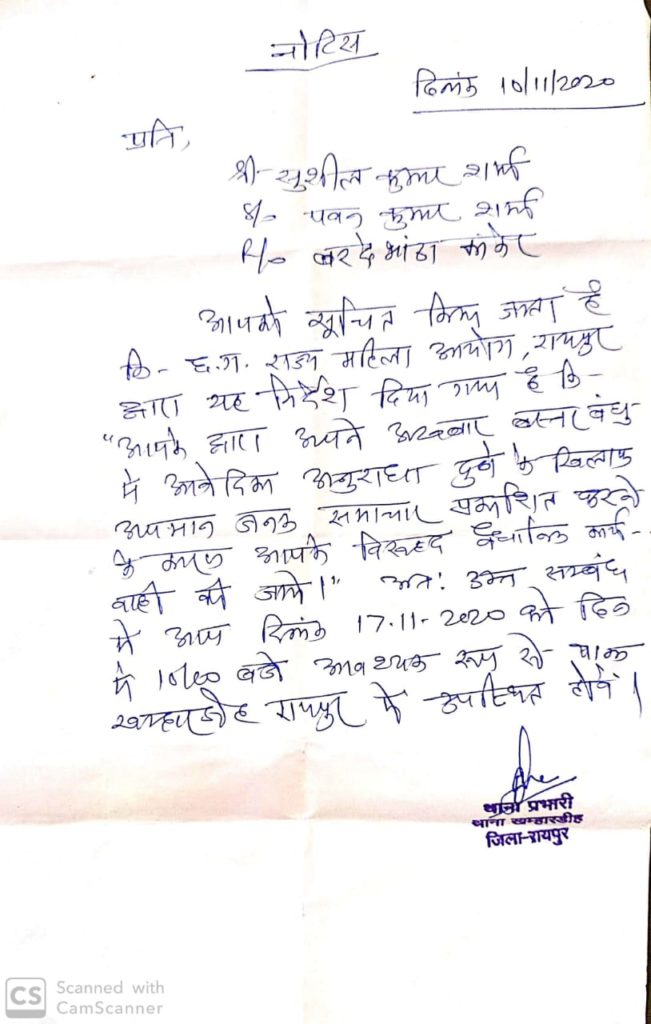 नोटिस
दिनांक 10/11/2020
प्रति,
श्री सुशील कुमार शर्मा
S/o पवन कुमार शर्मा
R/o बरदेभांठा कांकेर
आपको सूचित किया जाता है
कि - छ.ग. राज्य महिला आयोग, रायपुर
द्वारा यह निर्देश दिया गया है कि -
"आपके द्वारा अपने अखबार बस्तर बंधु
में आवेदिका अनुराधा दुबे के खिलाफ
अपमान जनक समाचार प्रकाशित करने
के कारण आपके विरूद्ध वैधानिक कार्य-
वाही की जावे।" अतः उक्त सम्बंध
में आप दिनांक 17.11.2020 को दिन
में 10/00 बजे आवश्यक रूप से थाना
खम्हारडीह रायपुर में उपस्थित होवें।
थाना प्रभारी
थाना खम्हारडीह
जिला-रायपुर
CS Scanned with
CamScanner